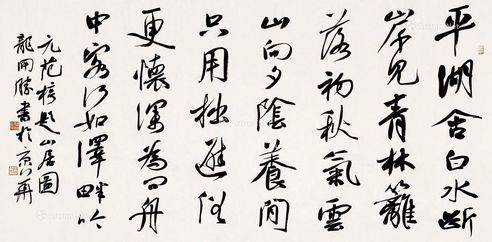 平湖舍白水斷
岸見青林籬
落初秋氣雲
山向夕陰養閒
只用拙避俗
更懷深為問舟
中客何如澤畔吟
元范梈題山居圖
龍開勝書於京華